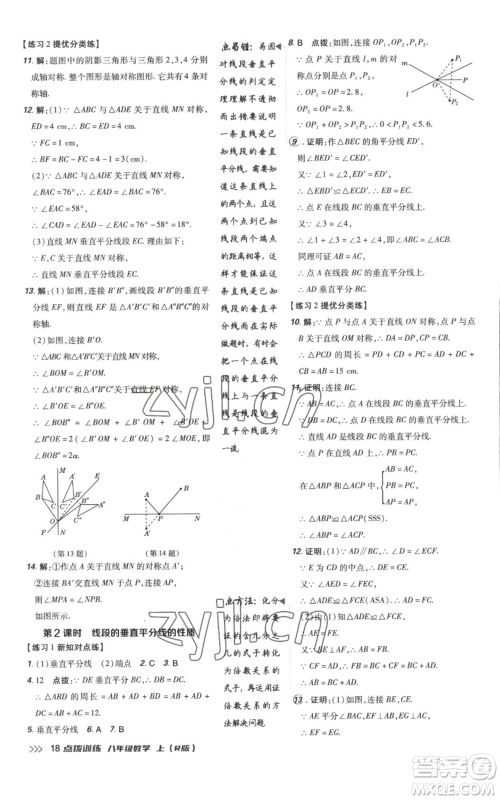 【练习2提优分类练】
11. 解:题图中的阴影三角形与三角形2,3,4分别
成轴对称. 整个图形是轴对称图形. 它共有2条
对称轴.
12. 解:(1)∵ △ABC 与 △ADE 关于直线 MN 对称,
ED = 4 cm,∴ BC = ED = 4 cm.
∵ FC = 1 cm,
∴ BF = BC - FC = 3 cm.
(2)∵ △ABC 与 △ADE 关于直线 MN 对称,
∠BAC = 76°,∴ ∠EAD = ∠BAC = 76°.
∵ ∠EAC = 58°,
∴ ∠CAD = ∠EAD - ∠EAC = 76° - 58° = 18°.
(3)直线 MN 垂直平分线段 EC. 理由如下:
∵ E,C 关于直线 MN 对称,
∴ 直线 MN 垂直平分线段 EC.
13. 解:(1)如图,连接 B′B″,画线段 B′B″的垂直平
分线 EF,则直线 EF 是△A′B′C′和△A″B″C″的
对称轴.
(2)如图,连接 B′O.
∵ △ABC 和 △A′B′C′关于直线 MN 对称,
∴ ∠BOM = ∠B′OM.
∵ △A′B′C′和 △A″B″C″关于直线 EF 对称,
∴ ∠B′OE = ∠B″OE.
∴ ∠BOB″ = ∠BOM + ∠B′OM + ∠B′OE +
∠B″OE = 2(∠B′OM + ∠B′OE) = 2∠MOE = 2α.
即 ∠BOB″ = 2α.
(第13题) (第14题)
14. 解:①作点 A 关于直线 MN 的对称点 A′;
②连接 BA′交直线 MN 于点 P,连接 AP,
则∠MPA = ∠NPB.
如图所示.
第2课时 线段的垂直平分线的性质
【练习1新知对点练】
1. (1)垂直平分线 (2)端点 2. C 3. B
4. 12 点拨:△ABD 的周长 = AB + AD + BD = AB +
AD + CD = AB + AC = 12.
5. 垂直平分线 6. A 7. B
点易错:易因对
垂直平
分线的
定理
理解不透
而出错,要
想说明一
条直线是
线段的垂
直平分线,
必须知
道这条直
线上有两
个点到
线段两个
端点的
距离相等,
这样才能
保证这条直
线是线段的
垂直平
分线,
不能
仅
根据一
个点就
说明,
这与线段
垂直平分
线混为
一谈.
点方法:化分
为倍,
证的
元的式子
转化为
倍数关系的
式子,运用
证明
倍数关系的
方法解决问题.
8. B 点拨:如图,连接 OP₁,OP₂,P₁P₂.
∵ 点 P 关于直线 l,m 的
对称点分别是点 P₁,P₂,
∴ OP₁ = OP = 2.8,OP₂ =
OP = 2.8.
∵ OP₁ + OP₂ > P₁P₂,∴ 0 < P₁P₂ < 5.6.
9. 证明:作△BEC 的角平分线 ED′,
则∠BED′ = ∠CED′.
∵ ∠1 = ∠2,ED′ = ED′,
∴ △EBD′ ≌ △ECD′.
∴ BE = CE.
∵ ∠1 = ∠2,∠3 = ∠4,
∴ ∠1 + ∠3 = ∠2 + ∠4,即 ∠ABC = ∠ACB.
同理可证 AB = AC.
∴ 点 A 在线段 BC 的垂直平分线上.
∵ BE = CE,
∴ 点 E 在线段 BC 的垂直平分线上.
∴ AD 垂直平分 BC.
【练习2提优分类练】
10. 解:∵ 点 P 与点 A 关于直线 ON 对称,点 P 与点
B 关于直线 OM 对称,∴ DA = DP,CP = CB.
∵ △PCD 的周长 = PD + DC + CP = DA + DC +
CB = AB = 15 cm,
∴ AB = 15 cm.
11. 证明:连接BC.
∵ AB = AC,∴ 点 A 在 BC 的垂直平分线上.
∵ BD = DC,∴ 点 D 在 BC 的垂直平分线上.
∴ AD 是线段 BC 的垂直平分线.
∵ 点 P 在 AD 上,∴ PB = PC.
在△ABP 和△ACP 中,
AB = AC,
PB = PC,
AP = AP,
∴ △ABP ≌ △ACP(SSS).
∴ ∠ABP = ∠ACP.
12. 证明:(1)∵ AD∥BC,∴ ∠D = ∠ECF.
∵ E 为 CD 的中点,∴ DE = CE.
∵ ∠AED = ∠FEC,∴ △ADE ≌ △FCE.
∴ FC = AD.
(2)由(1)知△ADE ≌ △FCE,
∴ AE = EF,AD = CF.
∵ BE⊥AE,∴ BE 是线段 AF 的垂直平分线.
∴ AB = BF = BC + CF.
∵ AD = CF,∴ AB = BC + AD.
13. 证明:(1)如图,连接 BE,CE.
∵ AE 平分∠BAC,EF⊥AB,EG⊥AC,
18 点拨训练 八年级数学 上(R版)
zyjl.cn
zyjl.cn